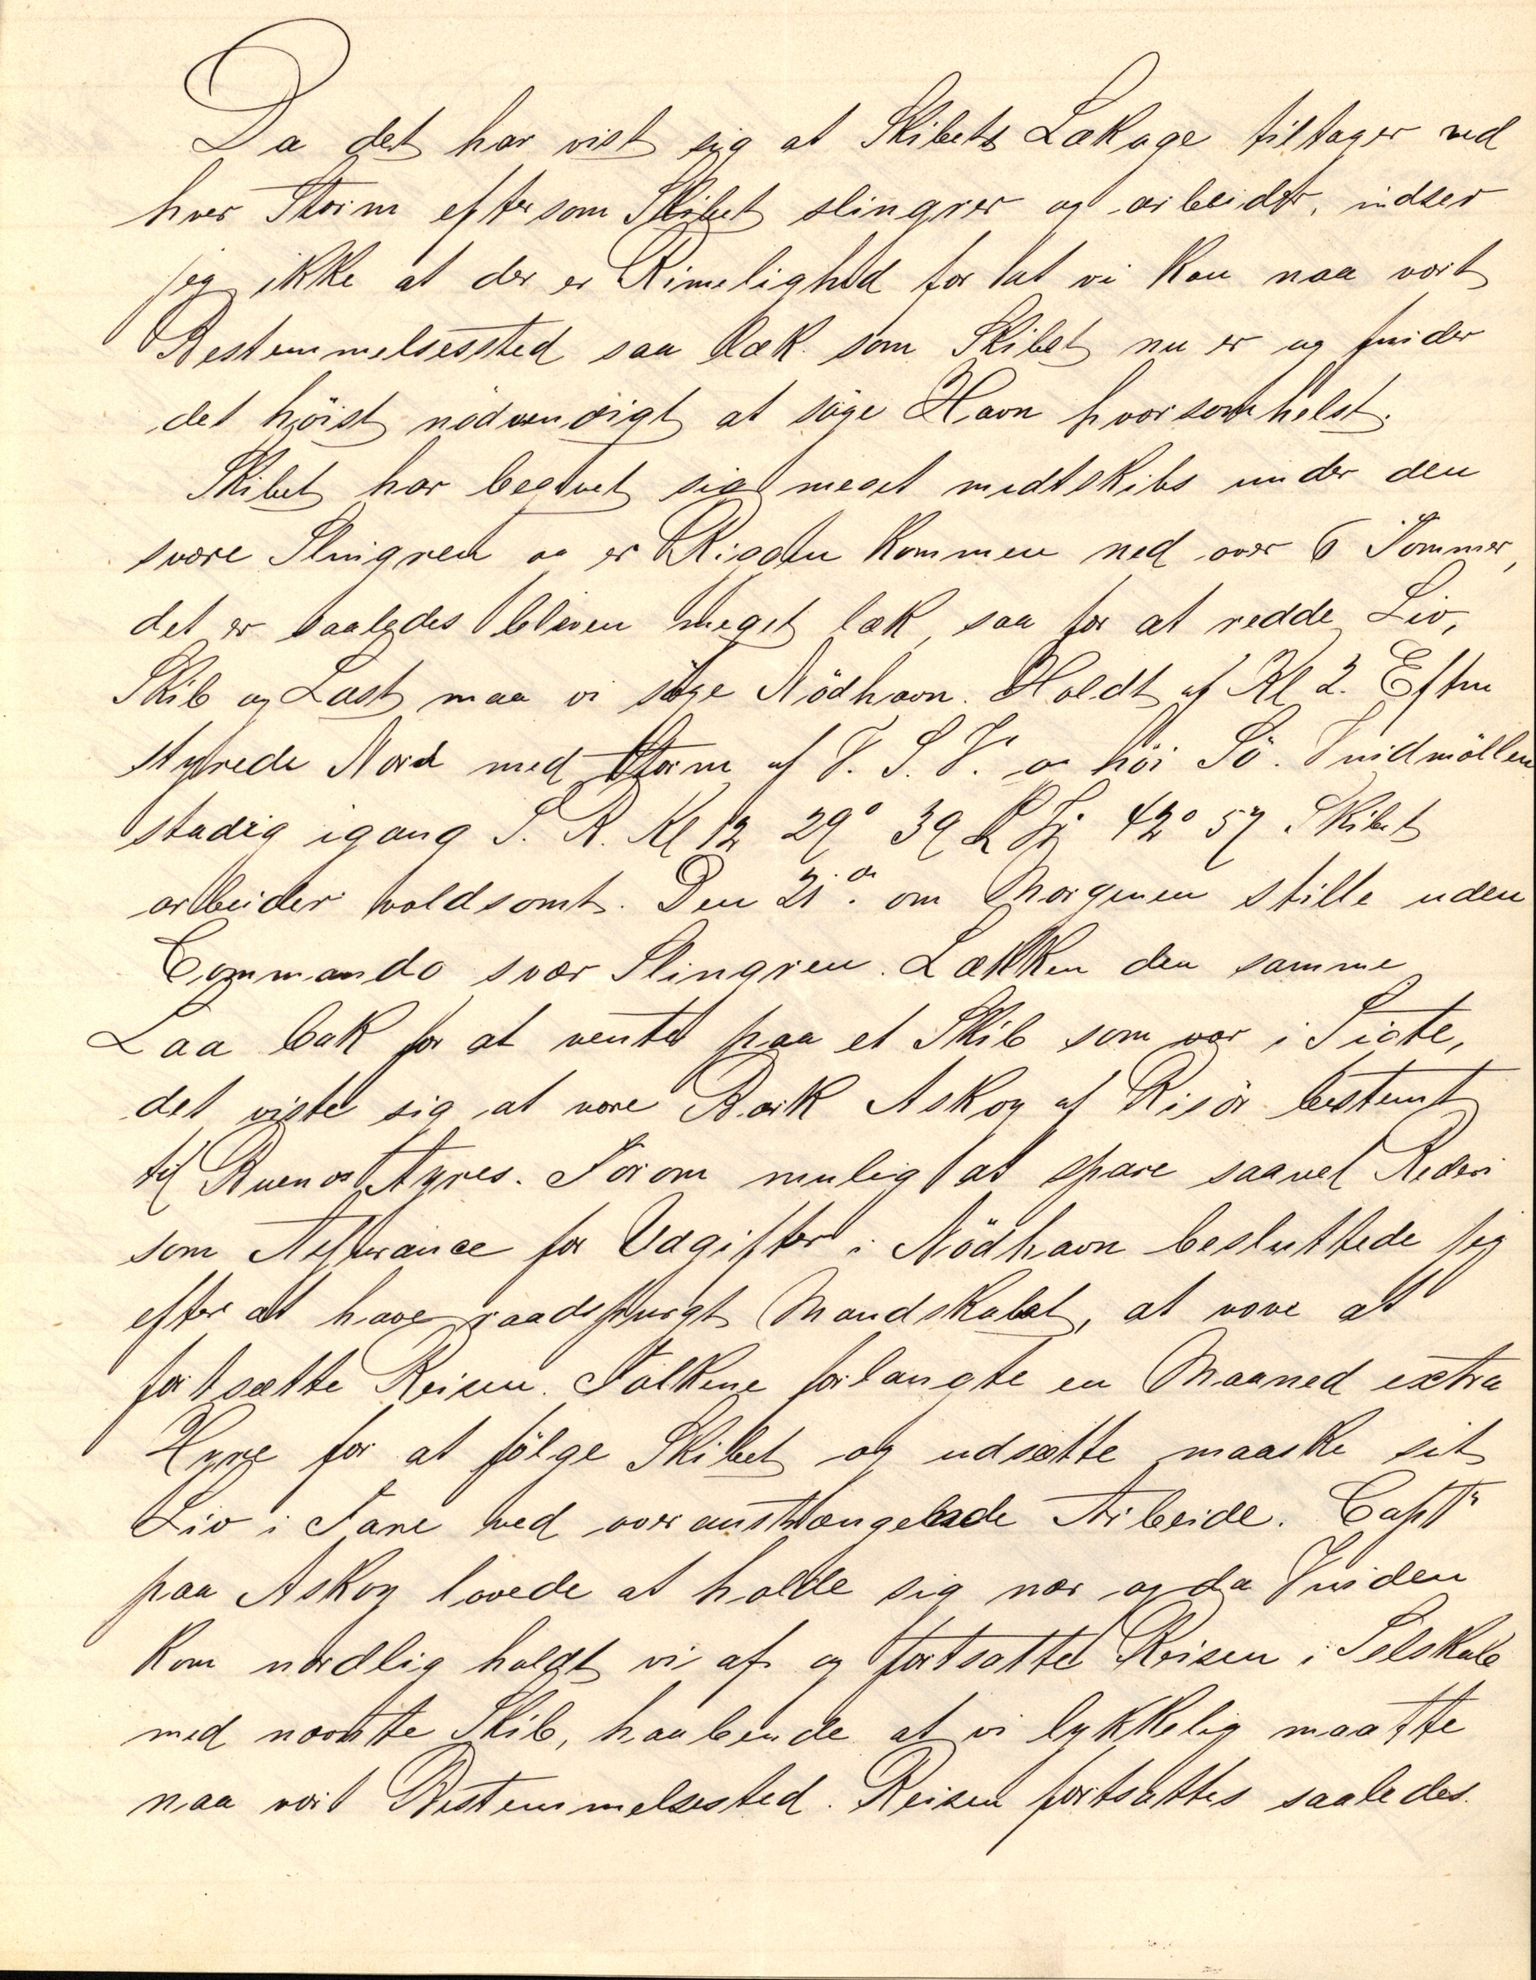 Da det har vist sig at Skibets Lækage tiltager ved
hver Storm eftersom Skibet slingrer og arbeider, indser
jeg ikke at der er Rimelighed for at vi kan naa vort
Bestemmelsessted saa læk som Skibet nu er og finder
det höist nödvendigt at söge Havn hvorsomhelst.
Skibet har begivet sig meget midtskibs under den
svære Slingren og er Riggen kommen ned over 6 Tommer,
det er saaledes bleven meget læk, saa for at redde Liv,
Skib og Last maa vi söge Nödhavn. Holdt af Kl 2. Eftm
styrede Nord med Storm af V. S. V. og höi Sö. Vindmöllen
stadig igang S. B. Kl 12 29° 39 42° 57 Skibet
arbeider voldsomt. Den 21de om Morgenen stille uden
Commando svær Slingren. Lækken den samme
Laa bak for at vente paa et Skib som var i Sigte,
det viste sig at være Bark Askoy af Risör bestemt
til Buenos Ayres. For om mulig at spare saavel Rederi
som Assurance for Udgifter i Nödhavn besluttede jeg
efter at have raadspurgt Mandskabet, at vove at
fortsætte Reisen. Folkene forlangte en Maaned extra
Hyre for at fölge Skibet og udsætte maaske sit
Liv i Fare ved overanstrængende Arbeide. Captn
paa Askoy lovede at holde sig nær og da Vinden
kom nordlig holdt vi af og fortsatte Reisen i Selskab
med nævnte Skib, haabende at vi lykkelig maatte
naa vort Bestemmelsessted. Reisen fortsattes saaledes.